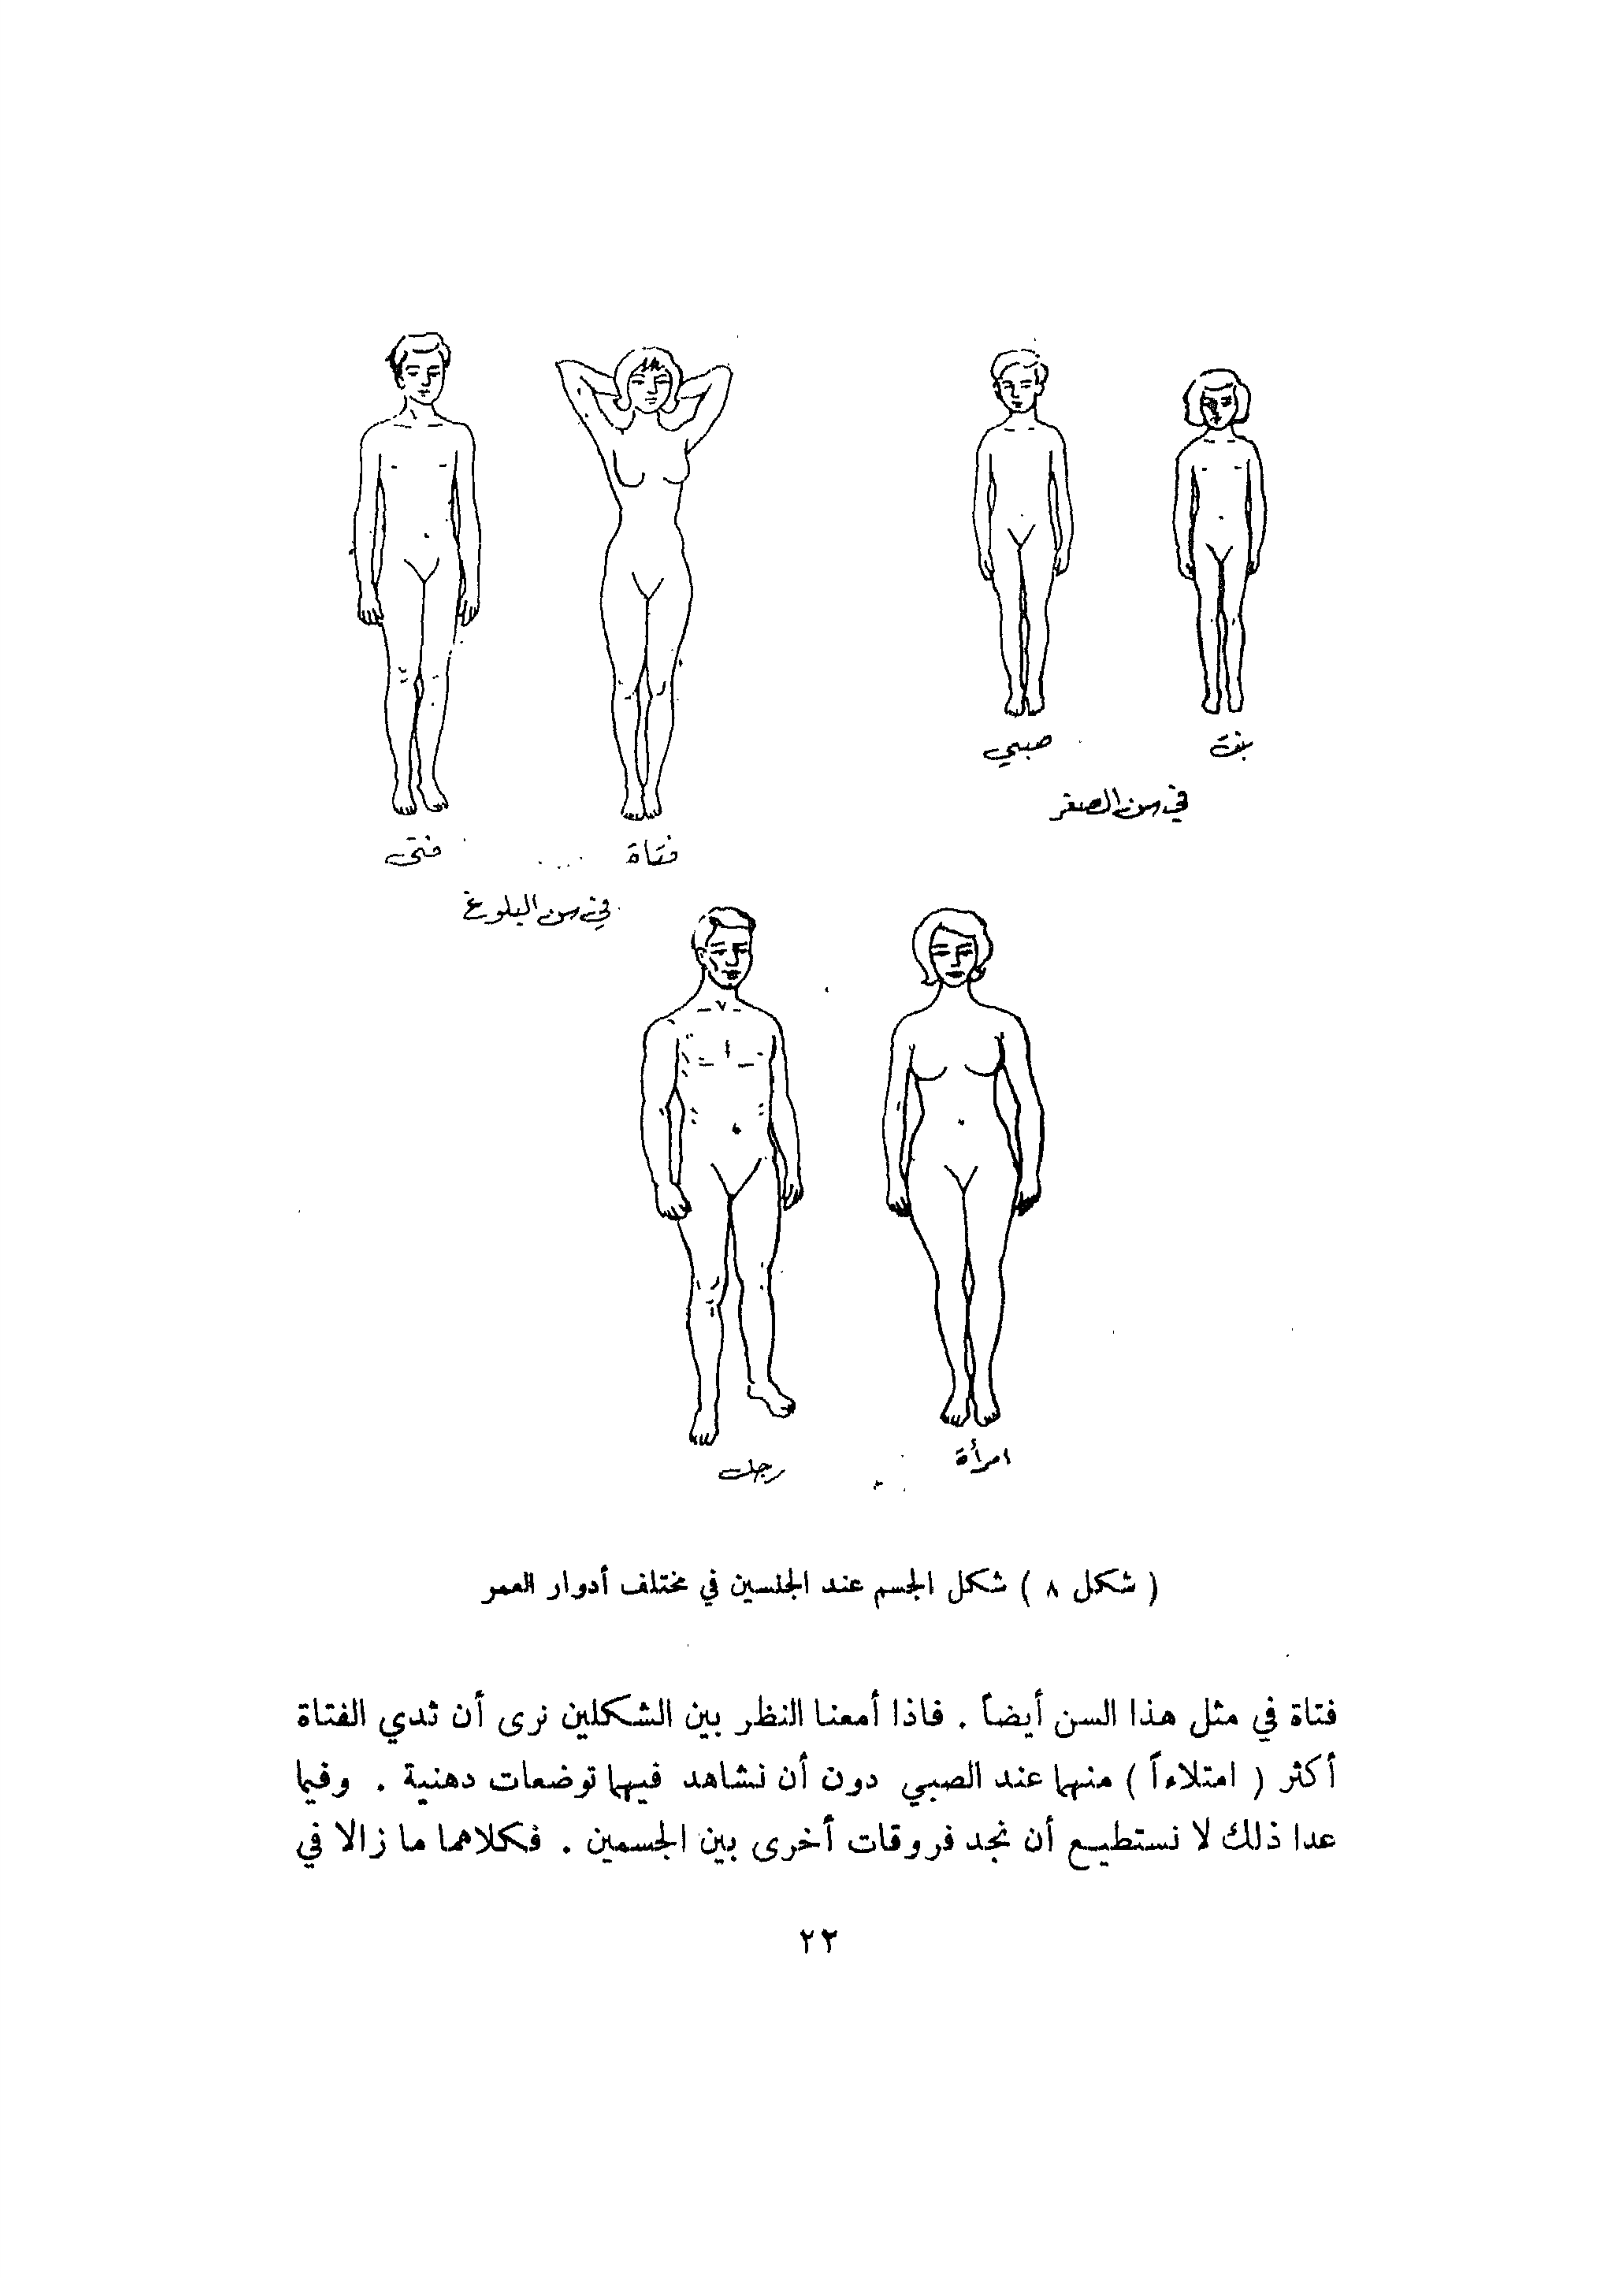 بنت
صبي
في سن الصغر
فتاة
فتى
في سن البلوغ
امرأة
رجل
( شكل ٨ ) شكل الجسم عند الجنسين في مختلف أدوار العمر
فتاة في مثل هذا السن أيضاً . فاذا أمعنا النظر بين الشكلين نرى أن ثدي الفتاة
أكثر ( امتلاءاً ) منهما عند الصبي دون أن نشاهد فيهما توضعات دهنية . وفيما
عدا ذلك لا نستطيع أن نجد فروقات أخرى بين الجسمين . فكلاهما ما زالا في
٢٣